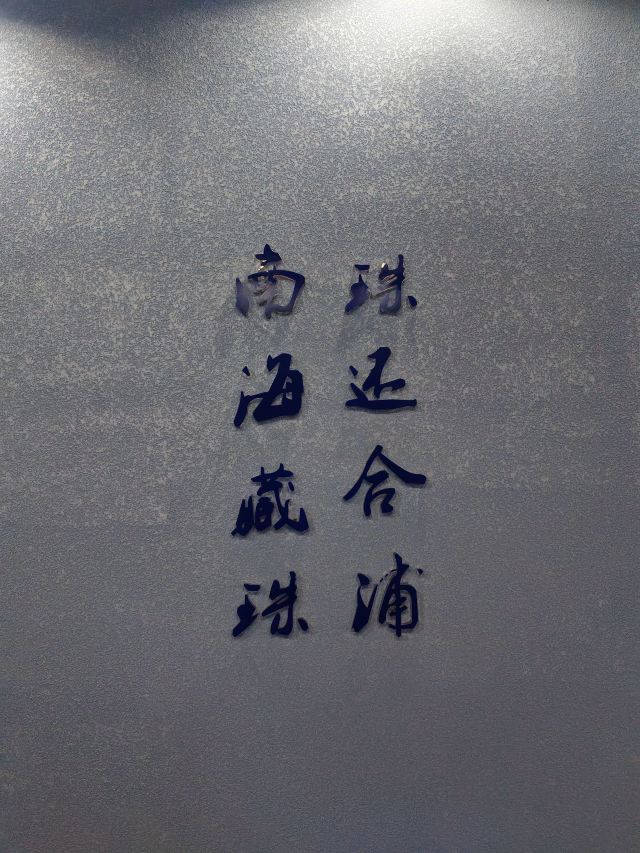 珠还合浦
南海藏珠